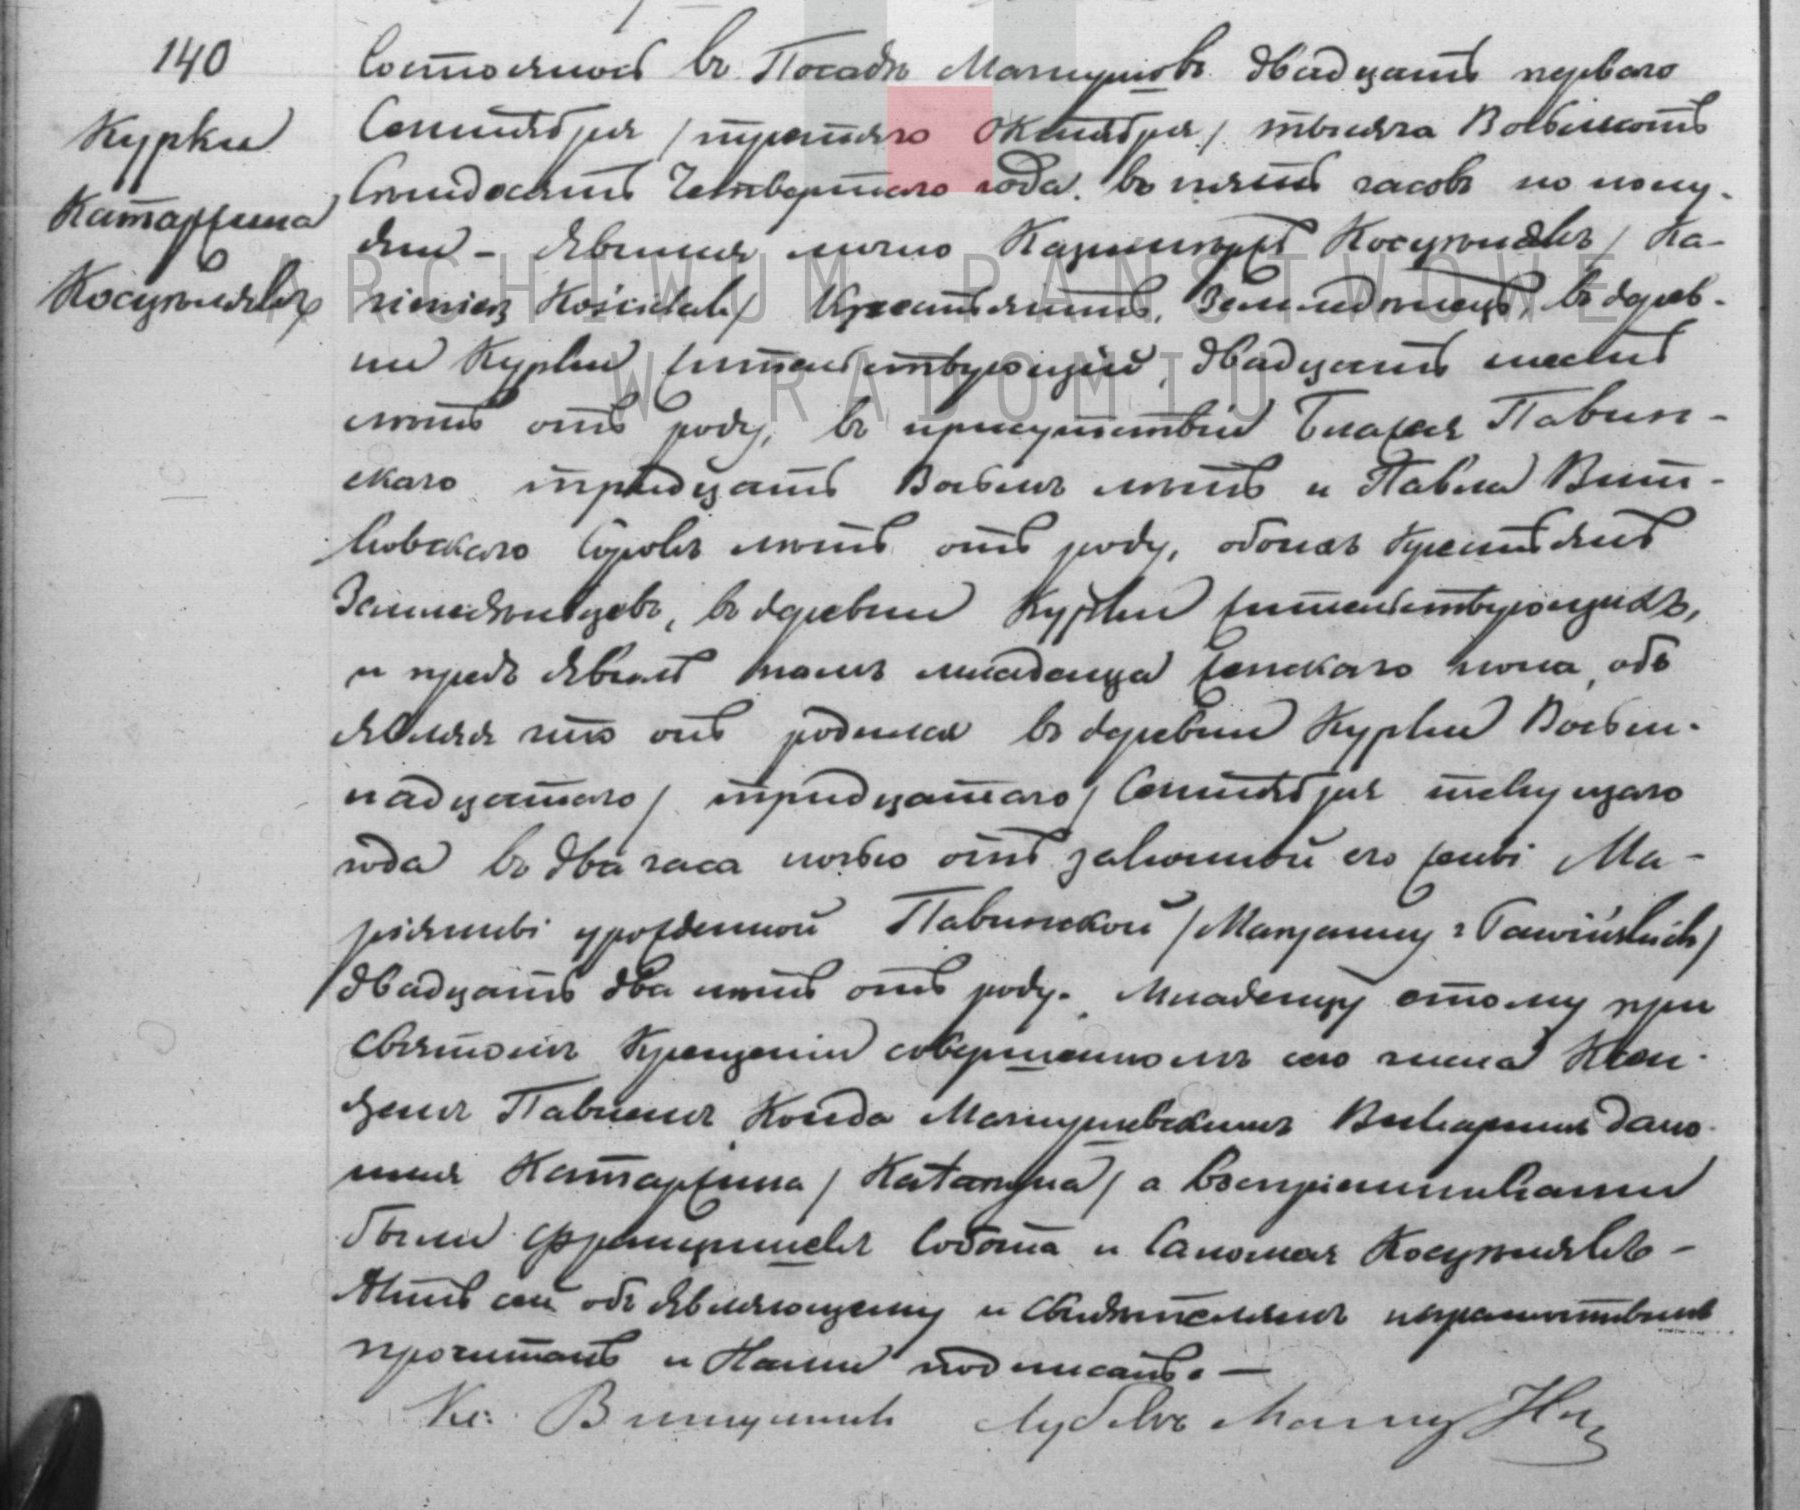 140
Курки
Катаржина
Косцюлекъ
Состоялось въ Посадѣ Магнушевъ двадцать перваго
Сентября / третьяго Октября / тысяча Восемьсотъ
Семьдесятъ Четвертаго года въ пять часовъ по полу-
дни – явился лично Казимиржъ / Ka-
zimierz / Крестьянинъ, Земледѣлецъ, въ дерев-
ни Курки жительствующій, двадцать шесть
лѣтъ отъ роду, въ присутствіи Блажея Павин-
скаго тридцать Восемь лѣтъ и Павла
Сорокъ лѣтъ отъ роду, обоихъ Крестьянъ
Земледѣльцевъ, въ деревни Курки жительствующихъ,
и предъ явилъ намъ младенца женскаго пола, объ
являя что онъ родился въ деревни Курки Восем-
надцатаго / тридцатаго / Сентября текущаго
года въ два часа ночью отъ законной его жены Ма-
ріянны урожденной Павинской / Maryanny z Pawińskich /
двадцать два лѣтъ отъ роду. Младенцу этому при
Святомъ Крещеніи совершонномъ сего числа Ксен-
дземъ Павломъ Магнушевскимъ Викаріемъ дано
имя Катаржина / Katarzyna / а воспріемниками
были Францишекъ Собота и Саломея
Актъ сей объявляющему и Свидѣтелямъ неграмотнымъ
прочитанъ и Нами подписанъ. –
Кс:
ARCHIWUM PAŃSTWOWE
W RADOMIU